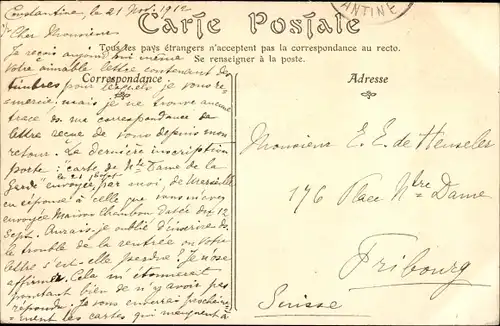 Constantine, le 21 Nov. 1912
CONSTANTINE
Carte Postale
Cher Monsieur
Tous les pays étrangers n'acceptent pas la correspondance au recto.
Se renseigner à la poste.
Correspondance
Adresse
Je reçois aujourd'hui même
votre aimable lettre contenant des
timbres pour lesquels je vous re-
mercie, mais je ne trouve aucune
trace de ma correspondance de
lettre reçue de vous depuis mon
retour. La dernière inscription
porte: "carte de Ntre Dame de la
le 21 Sept
Garde" envoyée par moi, de Marseille
en réponse à celle que vous m'avez
envoyée Maison Chambon datée du 12
Sept. Aurais-je oublié d'inscrire dans
le trouble de la rentrée ou votre
lettre s'est-elle perdue? Je n'ose
affirmer. Cela m'étonnerait
pourtant bien de n'y avoir pas
répondu. Je vous enverrai prochaine-
ment les cartes qui manquent à
Monsieur E. E. de Henseler
176 Place Ntre Dame
Fribourg
Suisse